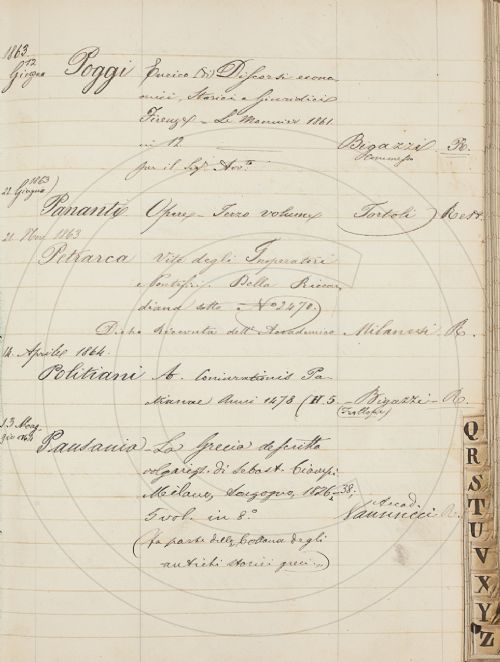 1863
12
Giugno Poggi Enrico (Di) Discorsi econo-
mici, Storici e Giuridici
Firenze - Le Monnier 1861.
in 12. Bigazzi R.
per il Sigr. Avv.
22 Giugno 1863
Pananti Opere - Terzo volume Tortoli Rest.
21. Nov. 1863
Petrarca Vite degli Imperatori
e Pontefici. Della Riccar
diana sotto N.o 2470.
Accademico Milanesi R.
14. Aprile 1864.
Politiani A. Coniurationis Pa-
ctianae Anni 1478 (H. 5. - Bigazzi - R.
13. Mag-
gio 1864
Pausania - La Grecia descritta
volgarizz. di Sebast. Ciampi.
Milano, Sonzogno, 1826-38,
5 vol. in 8.o Accad. Vannucci R.
(fa parte della Collana degli
antichi storici greci.)
Q
R
S
T
U
V
X
Y
Z